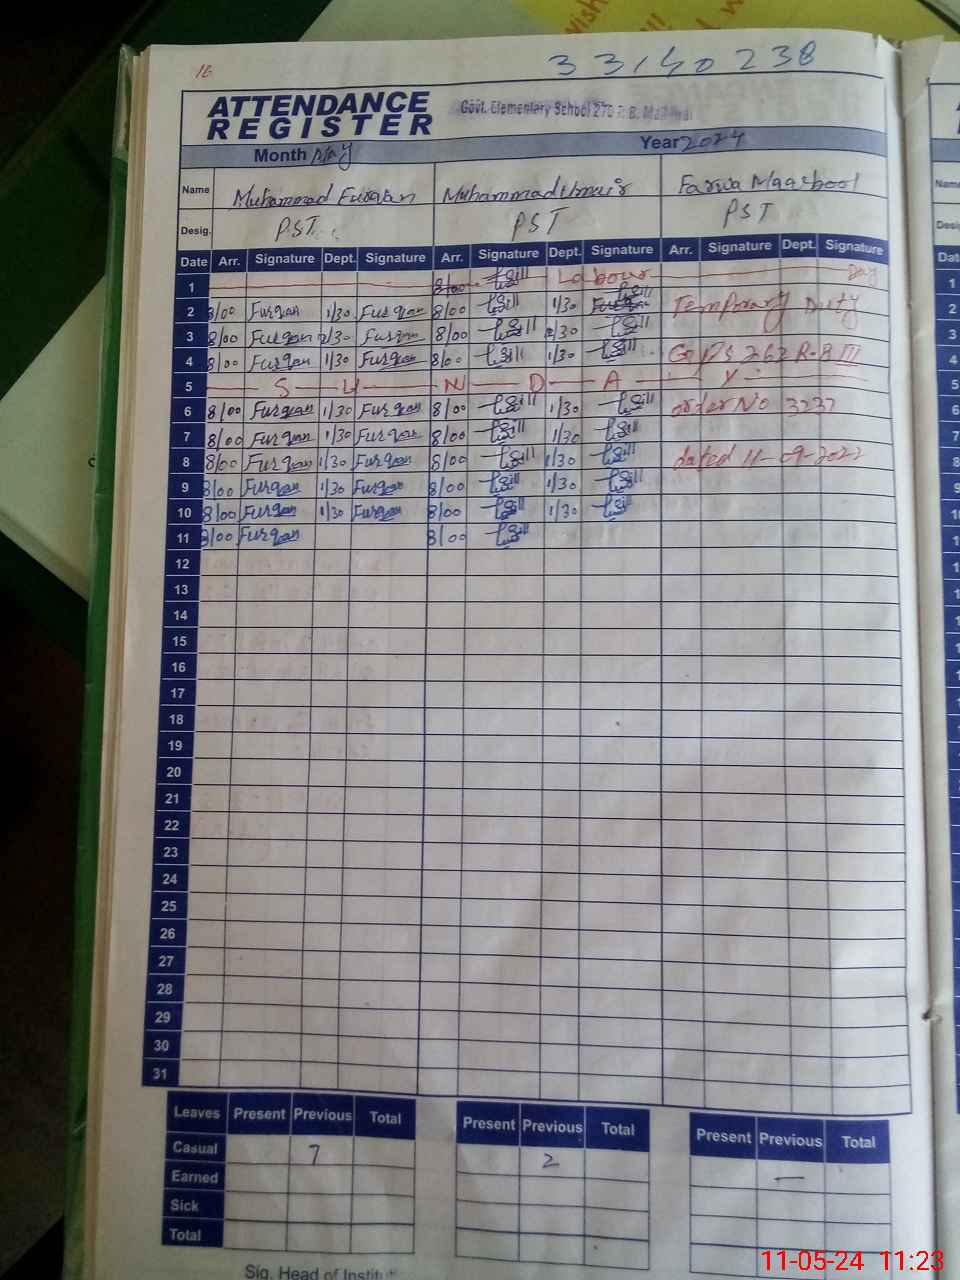 16
33140238
ATTENDANCE REGISTER
Govt. Elementary School 276
Month May Year 2024
Name Muhammad Furqan Muhammad Umair Farwa Maqbool
Desig. PST PST PST
Date Arr. Signature Dept. Signature Arr. Signature Dept. Signature Arr. Signature Dept. Signature
1 8/00 Labour Day
2 8/00 Furqan 1/30 Furqan 8/00 1/30 Temporary Duty
3 8/00 Furqan 1/30 Furqan 8/00 1/30
4 8/00 Furqan 1/30 Furqan 8/00 1/30 GPS 262 R.B III
5 S U N D A Y
6 8/00 Furqan 1/30 Furqan 8/00 1/30 order No 3237
7 8/00 Furqan 1/30 Furqan 8/00 1/30
8 8/00 Furqan 1/30 Furqan 8/00 1/30 dated 11-09-2022
9 8/00 Furqan 1/30 Furqan 8/00 1/30
10 8/00 Furqan 1/30 Furqan 8/00 1/30
11 8/00 Furqan 8/00
12
13
14
15
16
17
18
19
20
21
22
23
24
25
26
27
28
29
30
31
Leaves Present Previous Total Present Previous Total Present Previous Total
Casual 7 2 —
Earned
Sick
Total
Sig. Head of
11-05-24 11:23